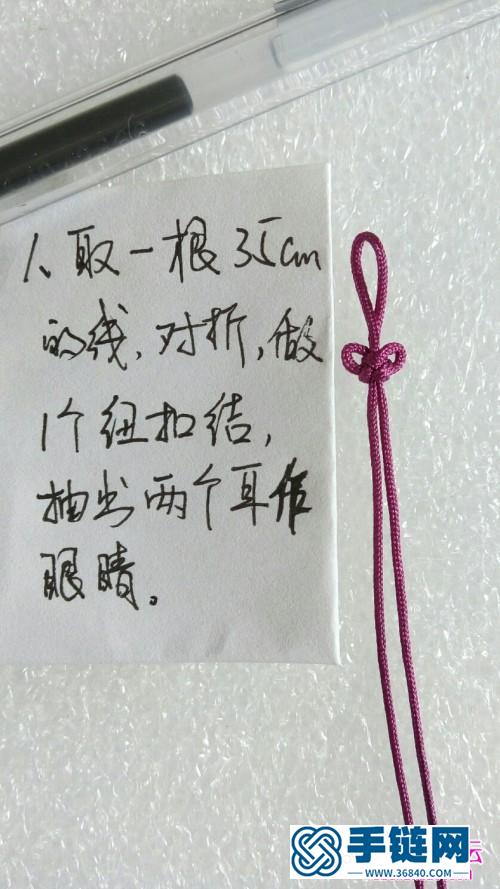 1、取一根35cm
的线，对折，做
1个纽扣结，
抽出两个耳作
眼睛。
手链网
www.36840.com